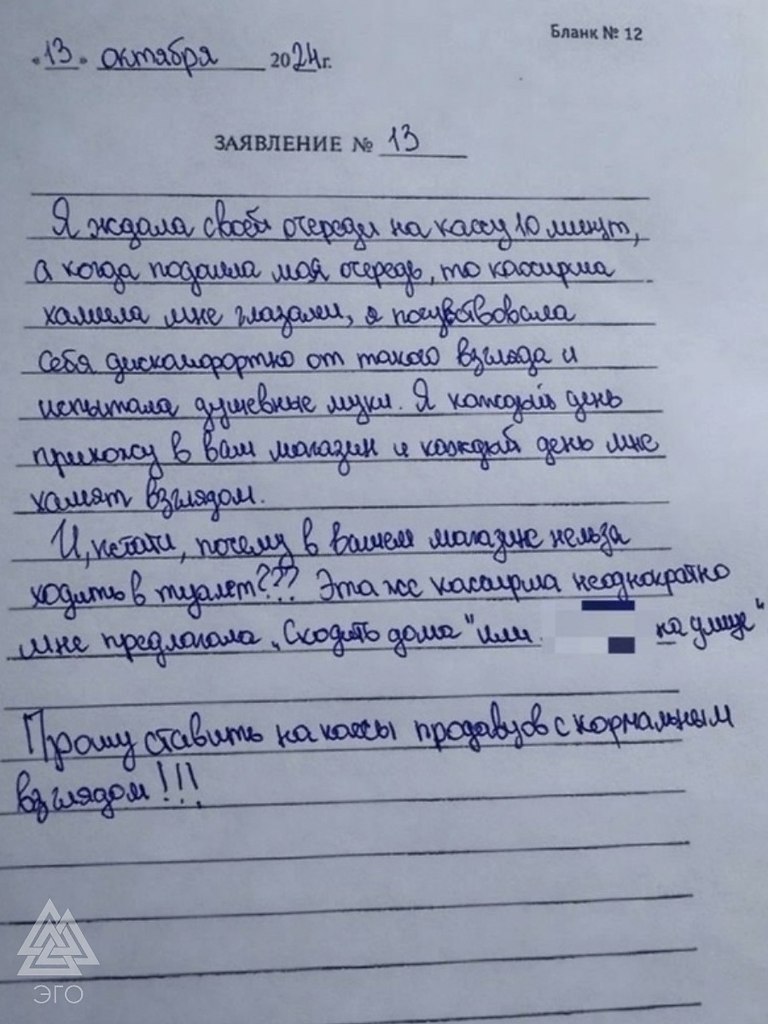 Бланк № 12
«13» октября 2024г.
ЗАЯВЛЕНИЕ № 13
Я ждала своей очереди на кассу 10 минут,
а когда подошла моя очередь, то кассирша
хамила мне глазами, я почувствовала
себя дискомфортно от такого взгляда и
испытала душевные муки. Я каждый день
прихожу в ваш магазин и каждый день мне
хамят взглядом.
И, кстати, почему в вашем магазине нельзя
ходить в туалет??? Эта же кассирша неоднократно
мне предлагала „Сходить дома" или на улице"
Прошу ставить на кассы продавцов с нормальным
взглядом!!!
ЭГО